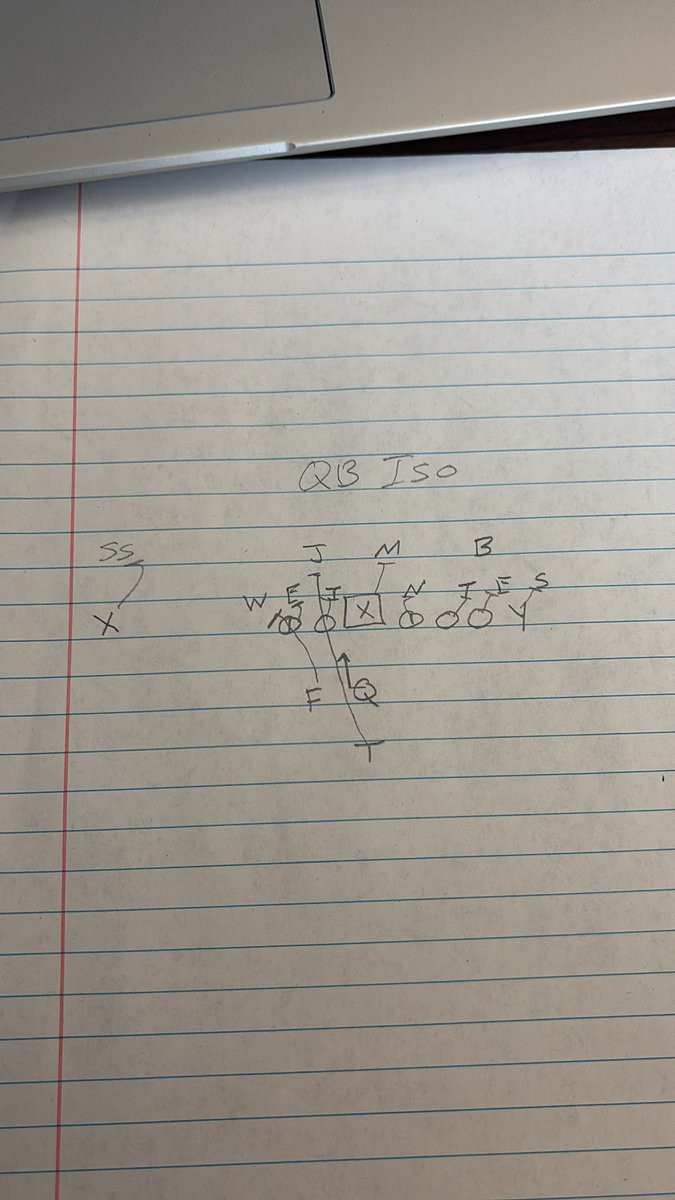 QB Iso
SS J M B
W E T N T E S
X X Y
F Q
T